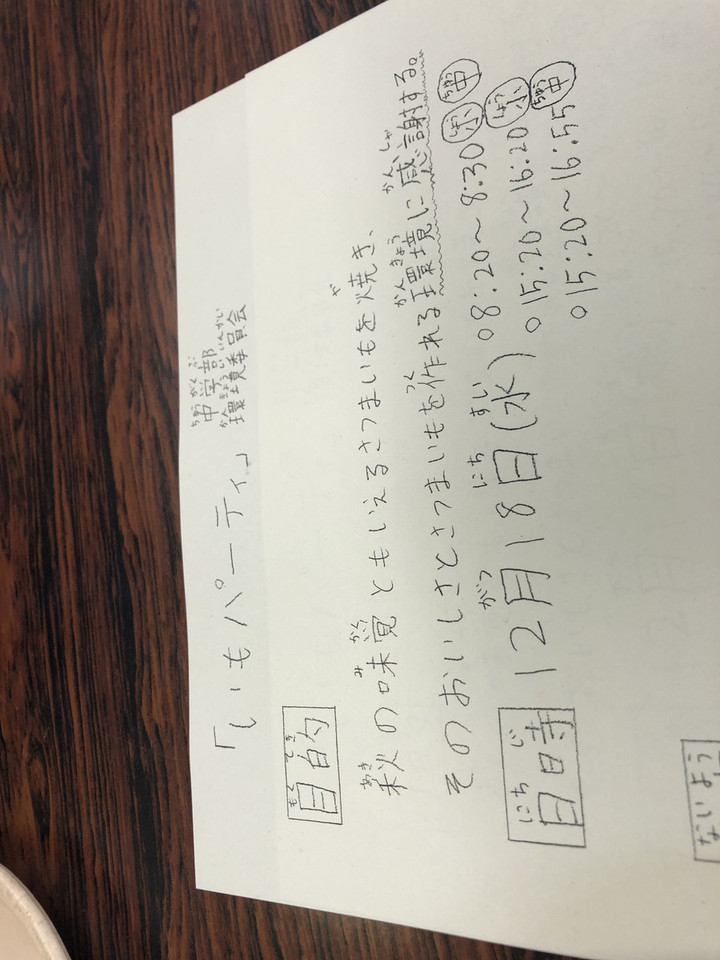 「いもパーティ」
中学部
環境委員会
目的
秋の味覚ともいえるさつまいもを焼き、
そのおいしさとさつまいもを作れる環境に感謝する。
日時 12月18日(水) o8:20〜8:30 小 中
o15:20〜16:20 小
o15:20〜16:55 中
ないよう